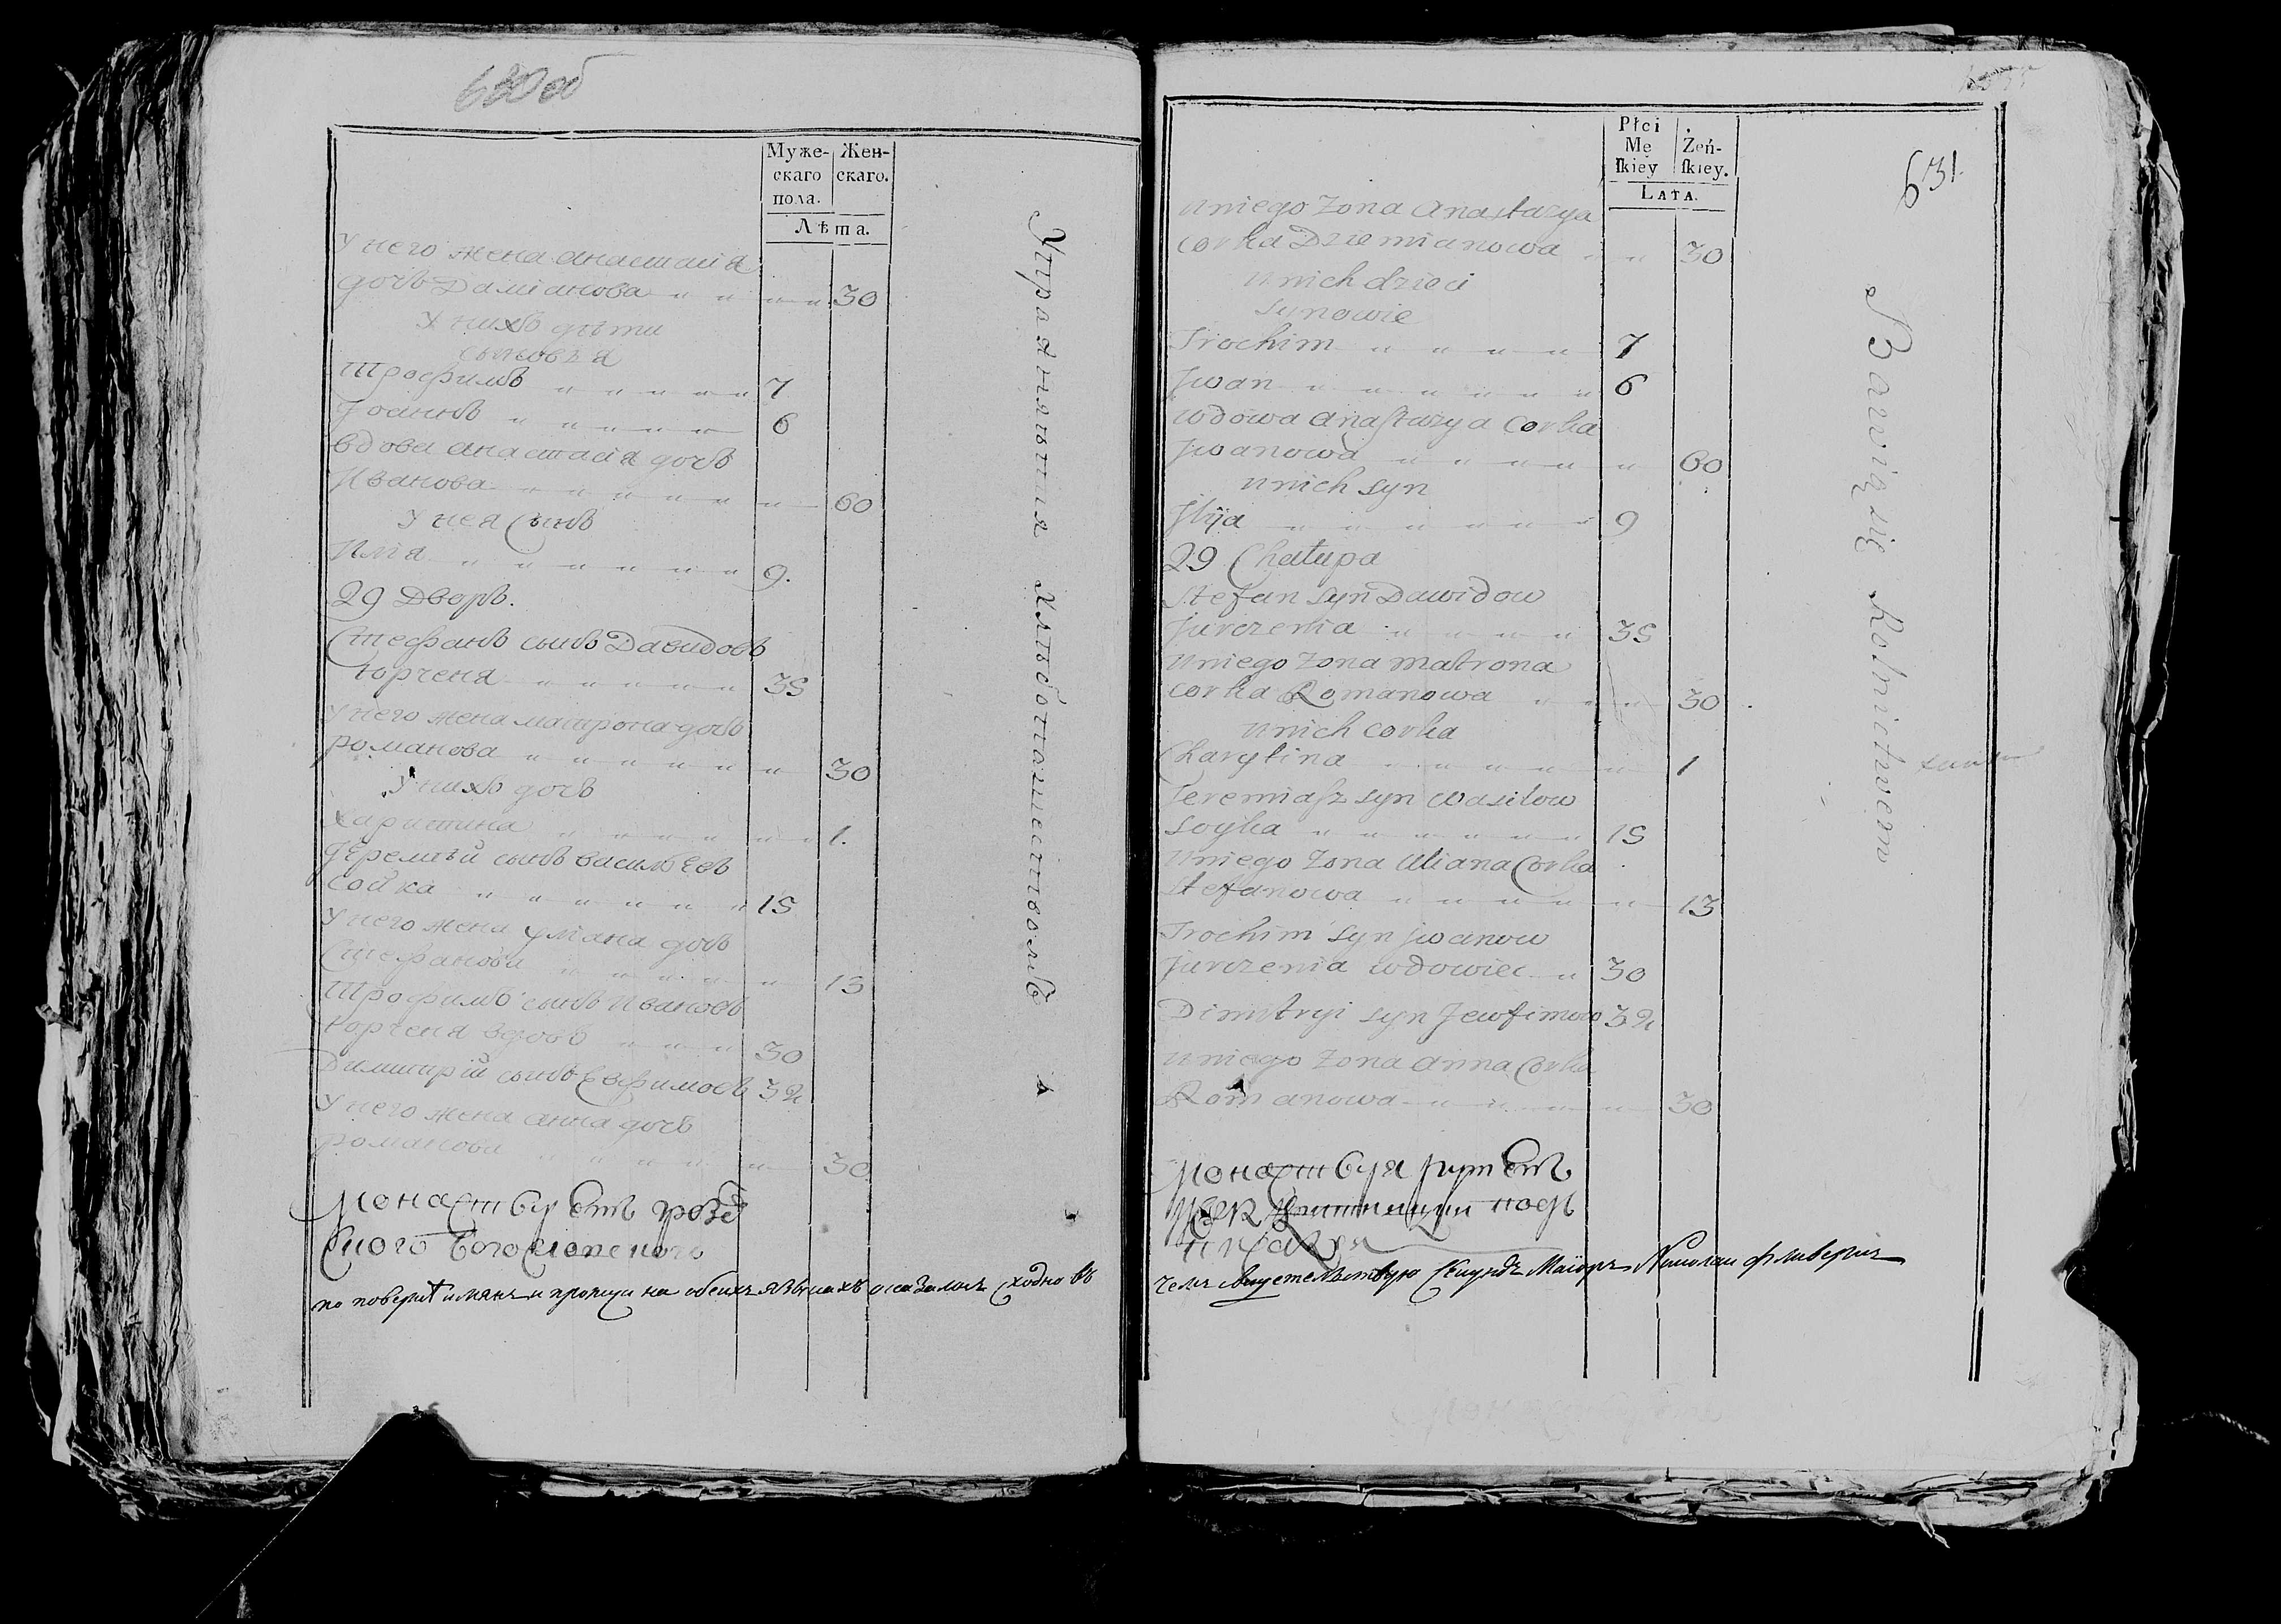 630 об
Муже-
скаго
пола.
Жен-
скаго.
Лѣта.
У него жена анастасія
дочь Даміанова " " " " 30
У нихъ дѣти
сыновья
Трофимъ " " " " " 7
Іоаннъ " " " " " 6
вдова анастасія дочь
Иванова " " " " " " 60
У нея Сынъ
Илія " " " " " " 9.
29 Дворъ.
Стефанъ сынъ Давидовъ
юрченя " " " " " 35
у него жена матрона дочь
романова " " " " " " 30
У нихъ дочь
Харитина " " " " " " 1.
Їеремѣй сынъ васильевъ
сойка " " " " " " 15
у него жена улїана дочь
Стефанова " " " " " 13
Трофимъ сынъ Ивановъ
юрченя вдовъ " " " 30
Димитрій сынъ Евфимовъ 32
У него жена анна дочь
романова " " " " " 30
Упраяняются хлѣбопашествомъ
по поверке имянъ и протчи на обеихъ языкахъ оказалось сходно въ
631
Płci
Mę
ſkiey
Żeń-
ſkiey.
Lata.
Uniego Zona Anastazya
corka Dziemianowa " " 30
Unich dzieci
synowie
Trochim " " " " " 7
Jwan " " " " " " 6
wdowa Anaſtazya Corka
Jwanowa " " " " " 60
Unich syn
Jlija " " " " " " 9
29 Chałupa
Stefan syn Dawidow
Jurczenia " " " " 35
Uniego Zona matrona
corka Romanowa " " " 30
Unich corka
Charytina " " " " " 1
Jeremiaſz syn Wasilow
Soyka " " " " " " 15
Uniego Zona Uliana Corka
Stefanowa " " " " " 13
Trochim syn Jwanow
Jurczenia wdowiec " 30
Dimitryi syn Jewfimow 32
Uniego Zona Anna Corka
Romanowa " " " " 30
Bawią się Rolnictwem
чемъ свидетельствую Секундъ Маіоръ Николаи